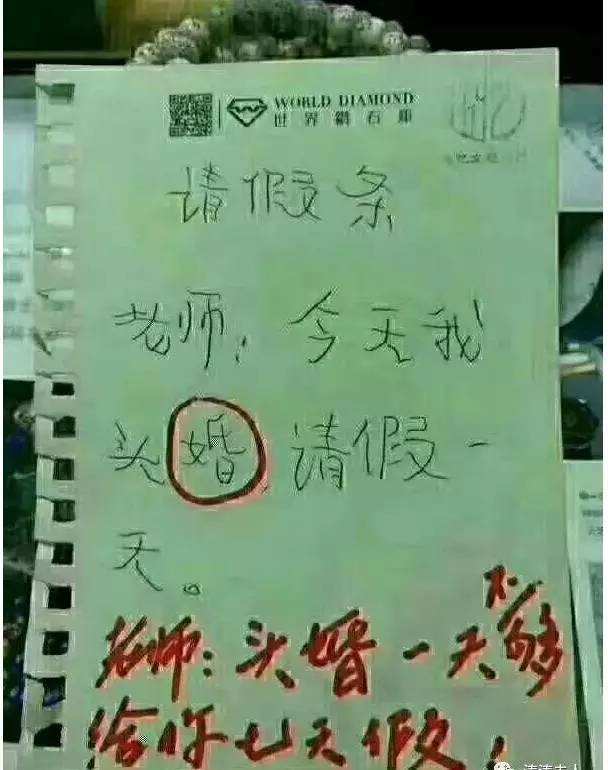 WORLD DIAMOND
请假条
老师，今天我
头婚，请假一
天。
老师：头婚一天不够
给你七天假！